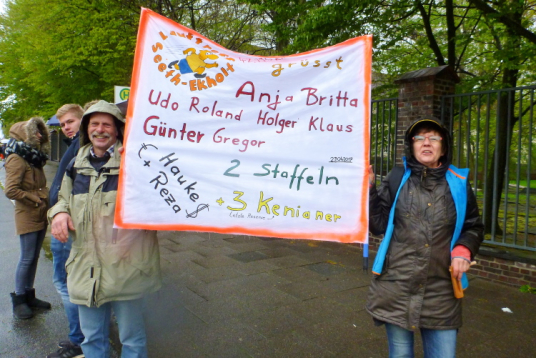 Seeth-Ekholt
grüsst
Anja Britta
Udo Roland Holger Klaus
Günter Gregor
2 Staffeln
Hauke
+ Reza
+ 3 Kenianer